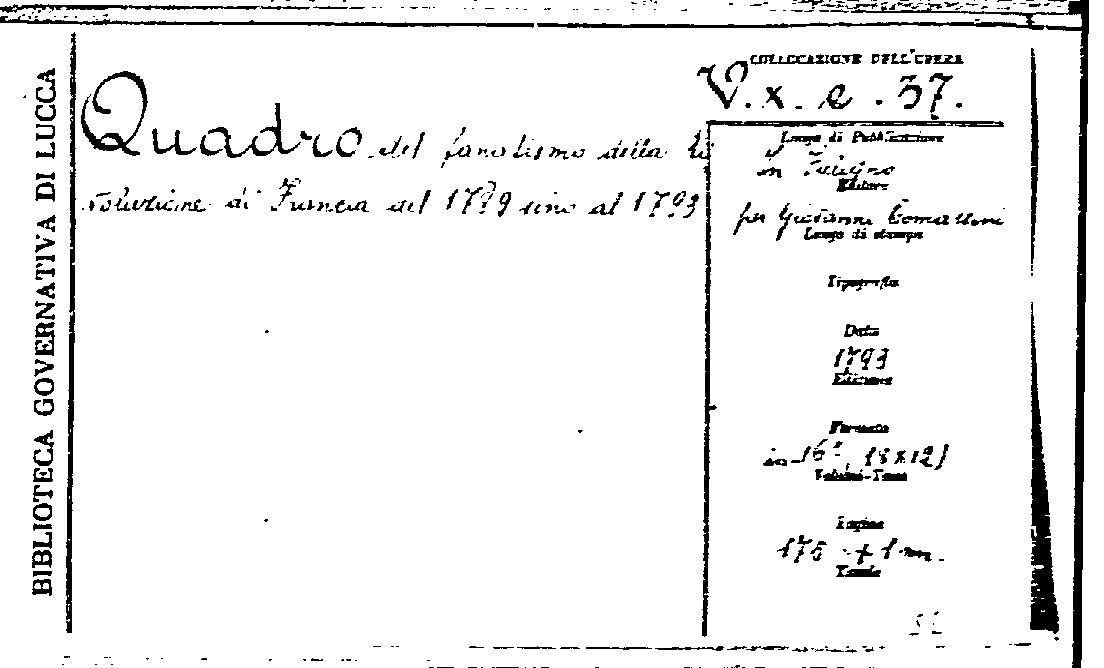 BIBLIOTECA GOVERNATIVA DI LUCCA
Quadro del fanatismo della
di Francia del 1789 sino al 1793
COLLOCAZIONE DELL'OPERA
V. x. e. 37.
Luogo di Pubblicazione
in Foligno
Editore
per Giovanni Tomassini
Luogo di stampa
Tipografia
Data
1793
Edizione
Formato
in 16°
Volumi-Tomi
Pagine
175 + 1
Tavole